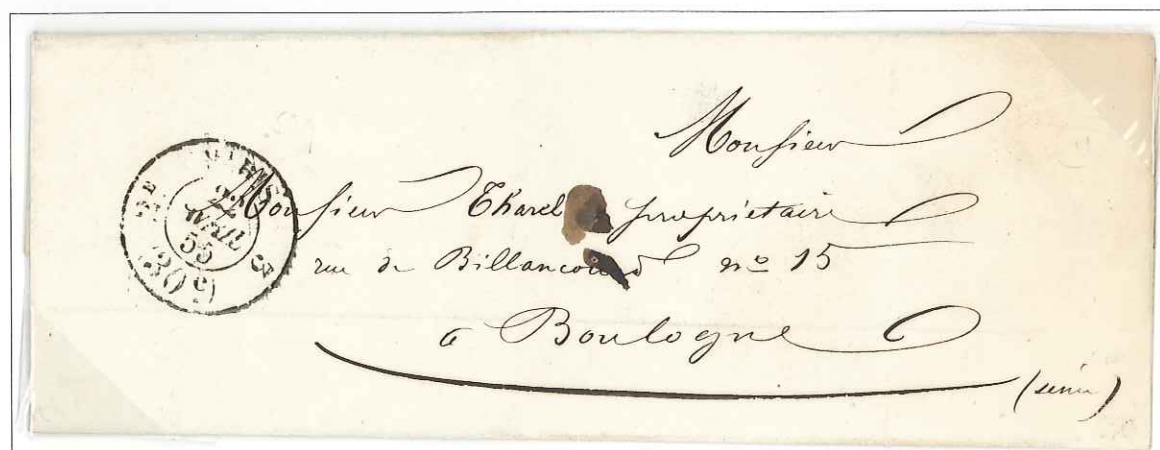 Monsieur
Monsieur Tharel propriétaire
rue de Billancourt n° 15
a Boulogne
(seine)
2E
3
AVRIL
55
(60)